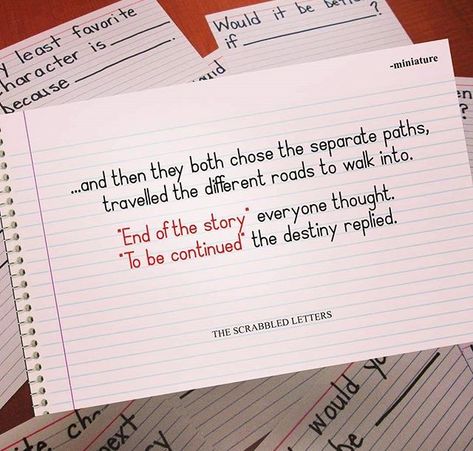 y least favorite
haracter is
because
Would it be be
if ?
-miniature
...and then they both chose the separate paths,
travelled the different roads to walk into.
"End of the story" everyone thought.
"To be continued" the destiny replied.
THE SCRABBLED LETTERS
would yo
be